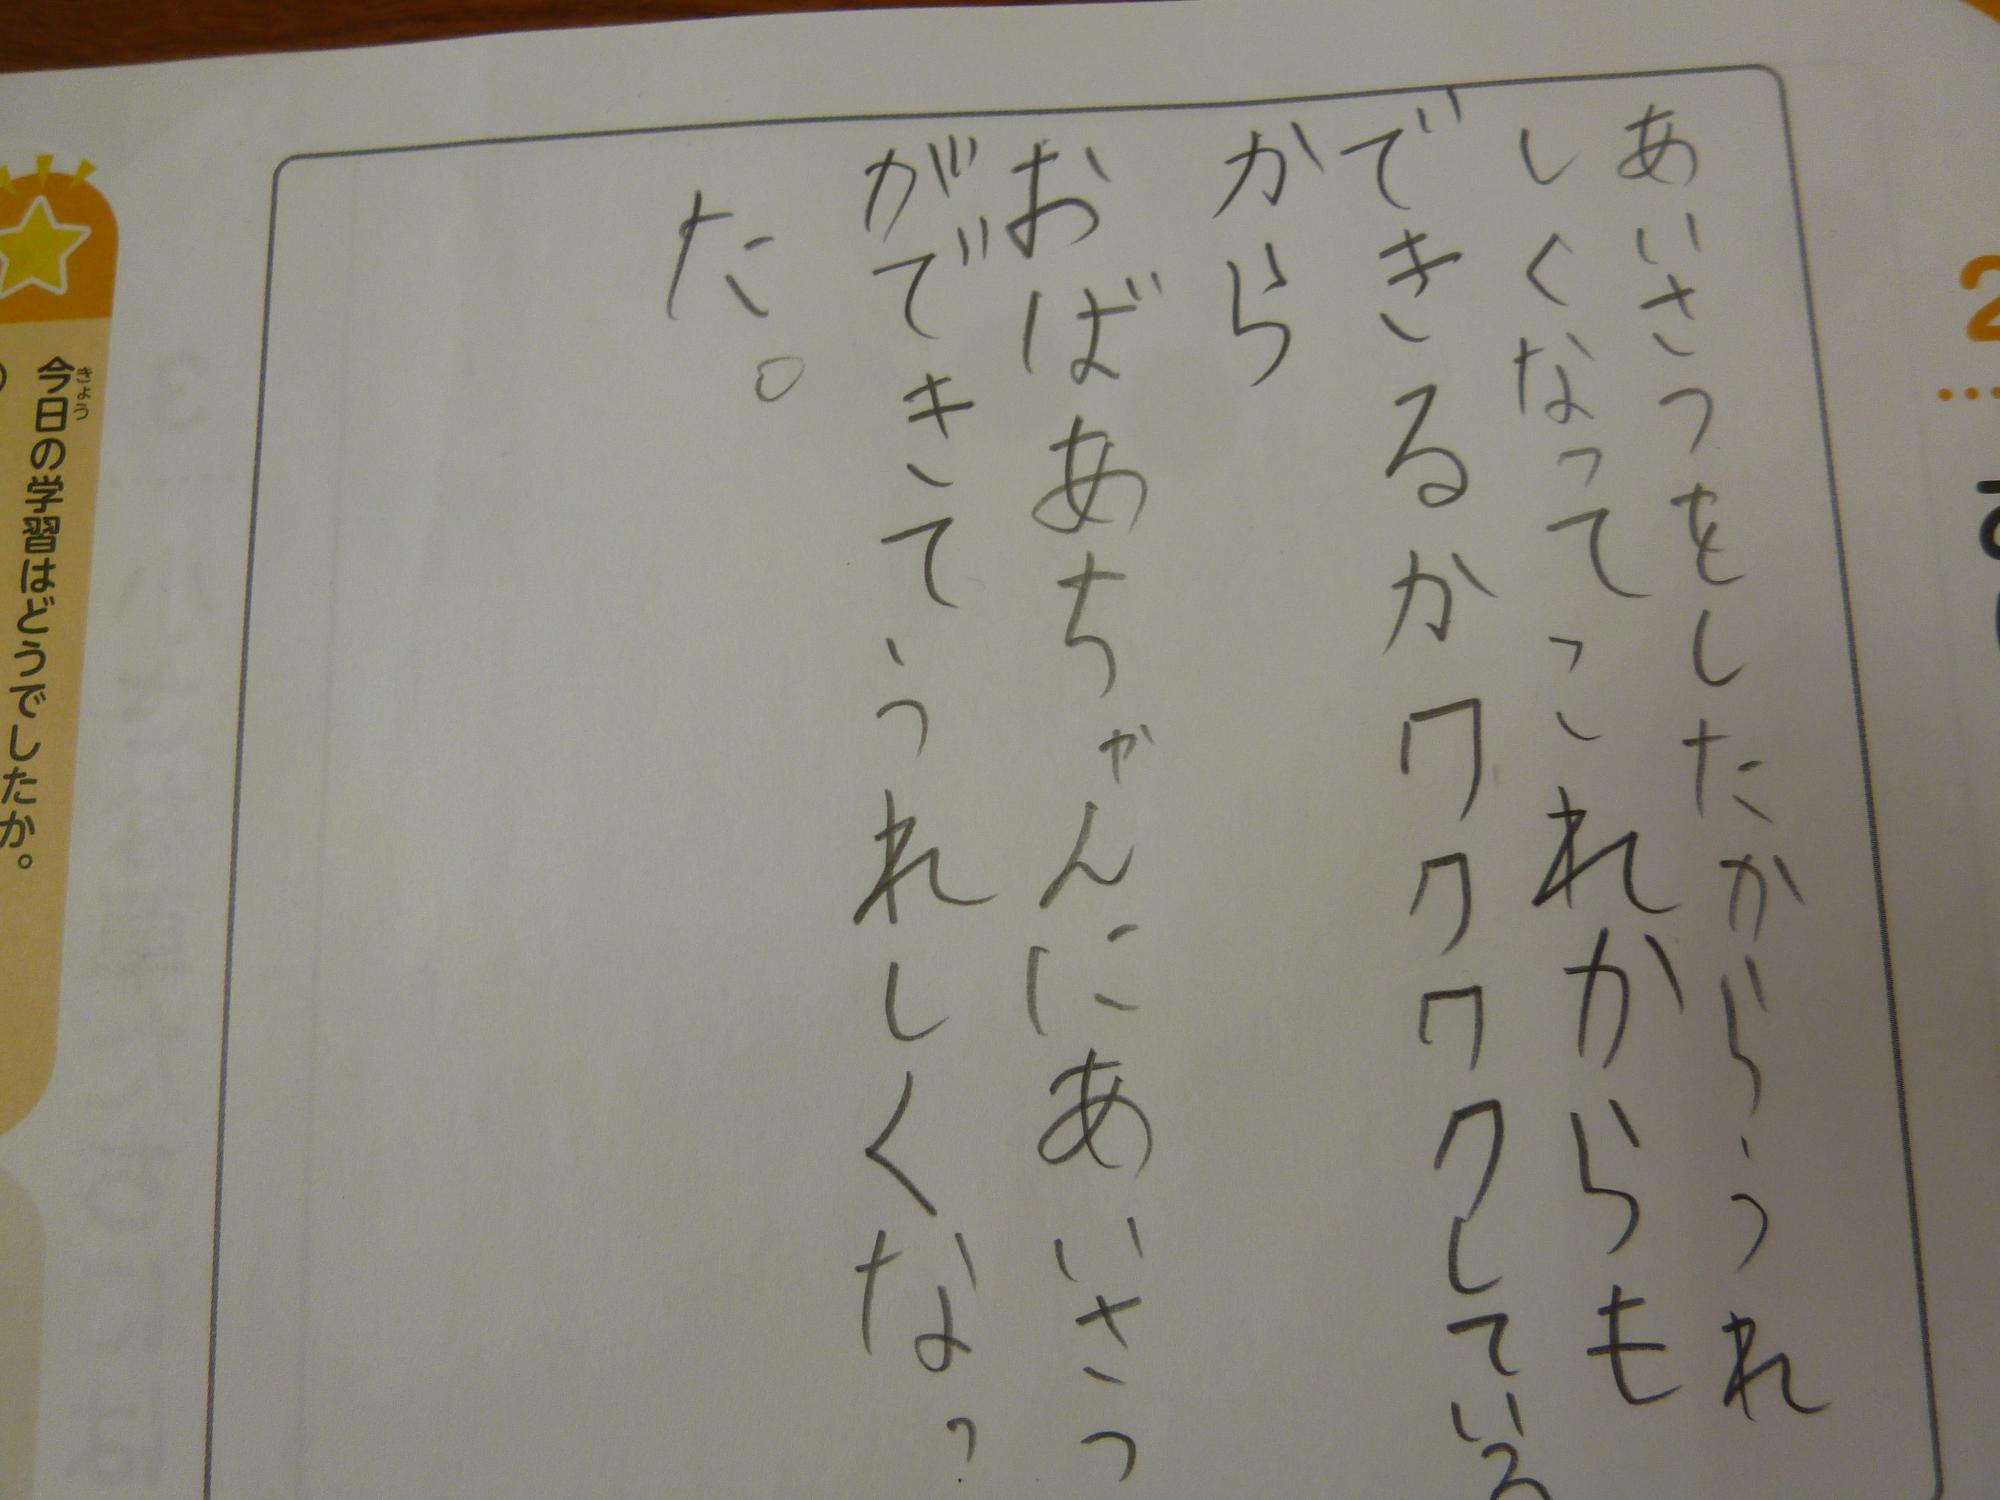 2
あいさつをしたからうれ
しくなってこれからも
できるかワクワクしている
から
おばあちゃんにあいさつ
ができてうれしくなっ
た。
今日の学習はどうでしたか。
きょう